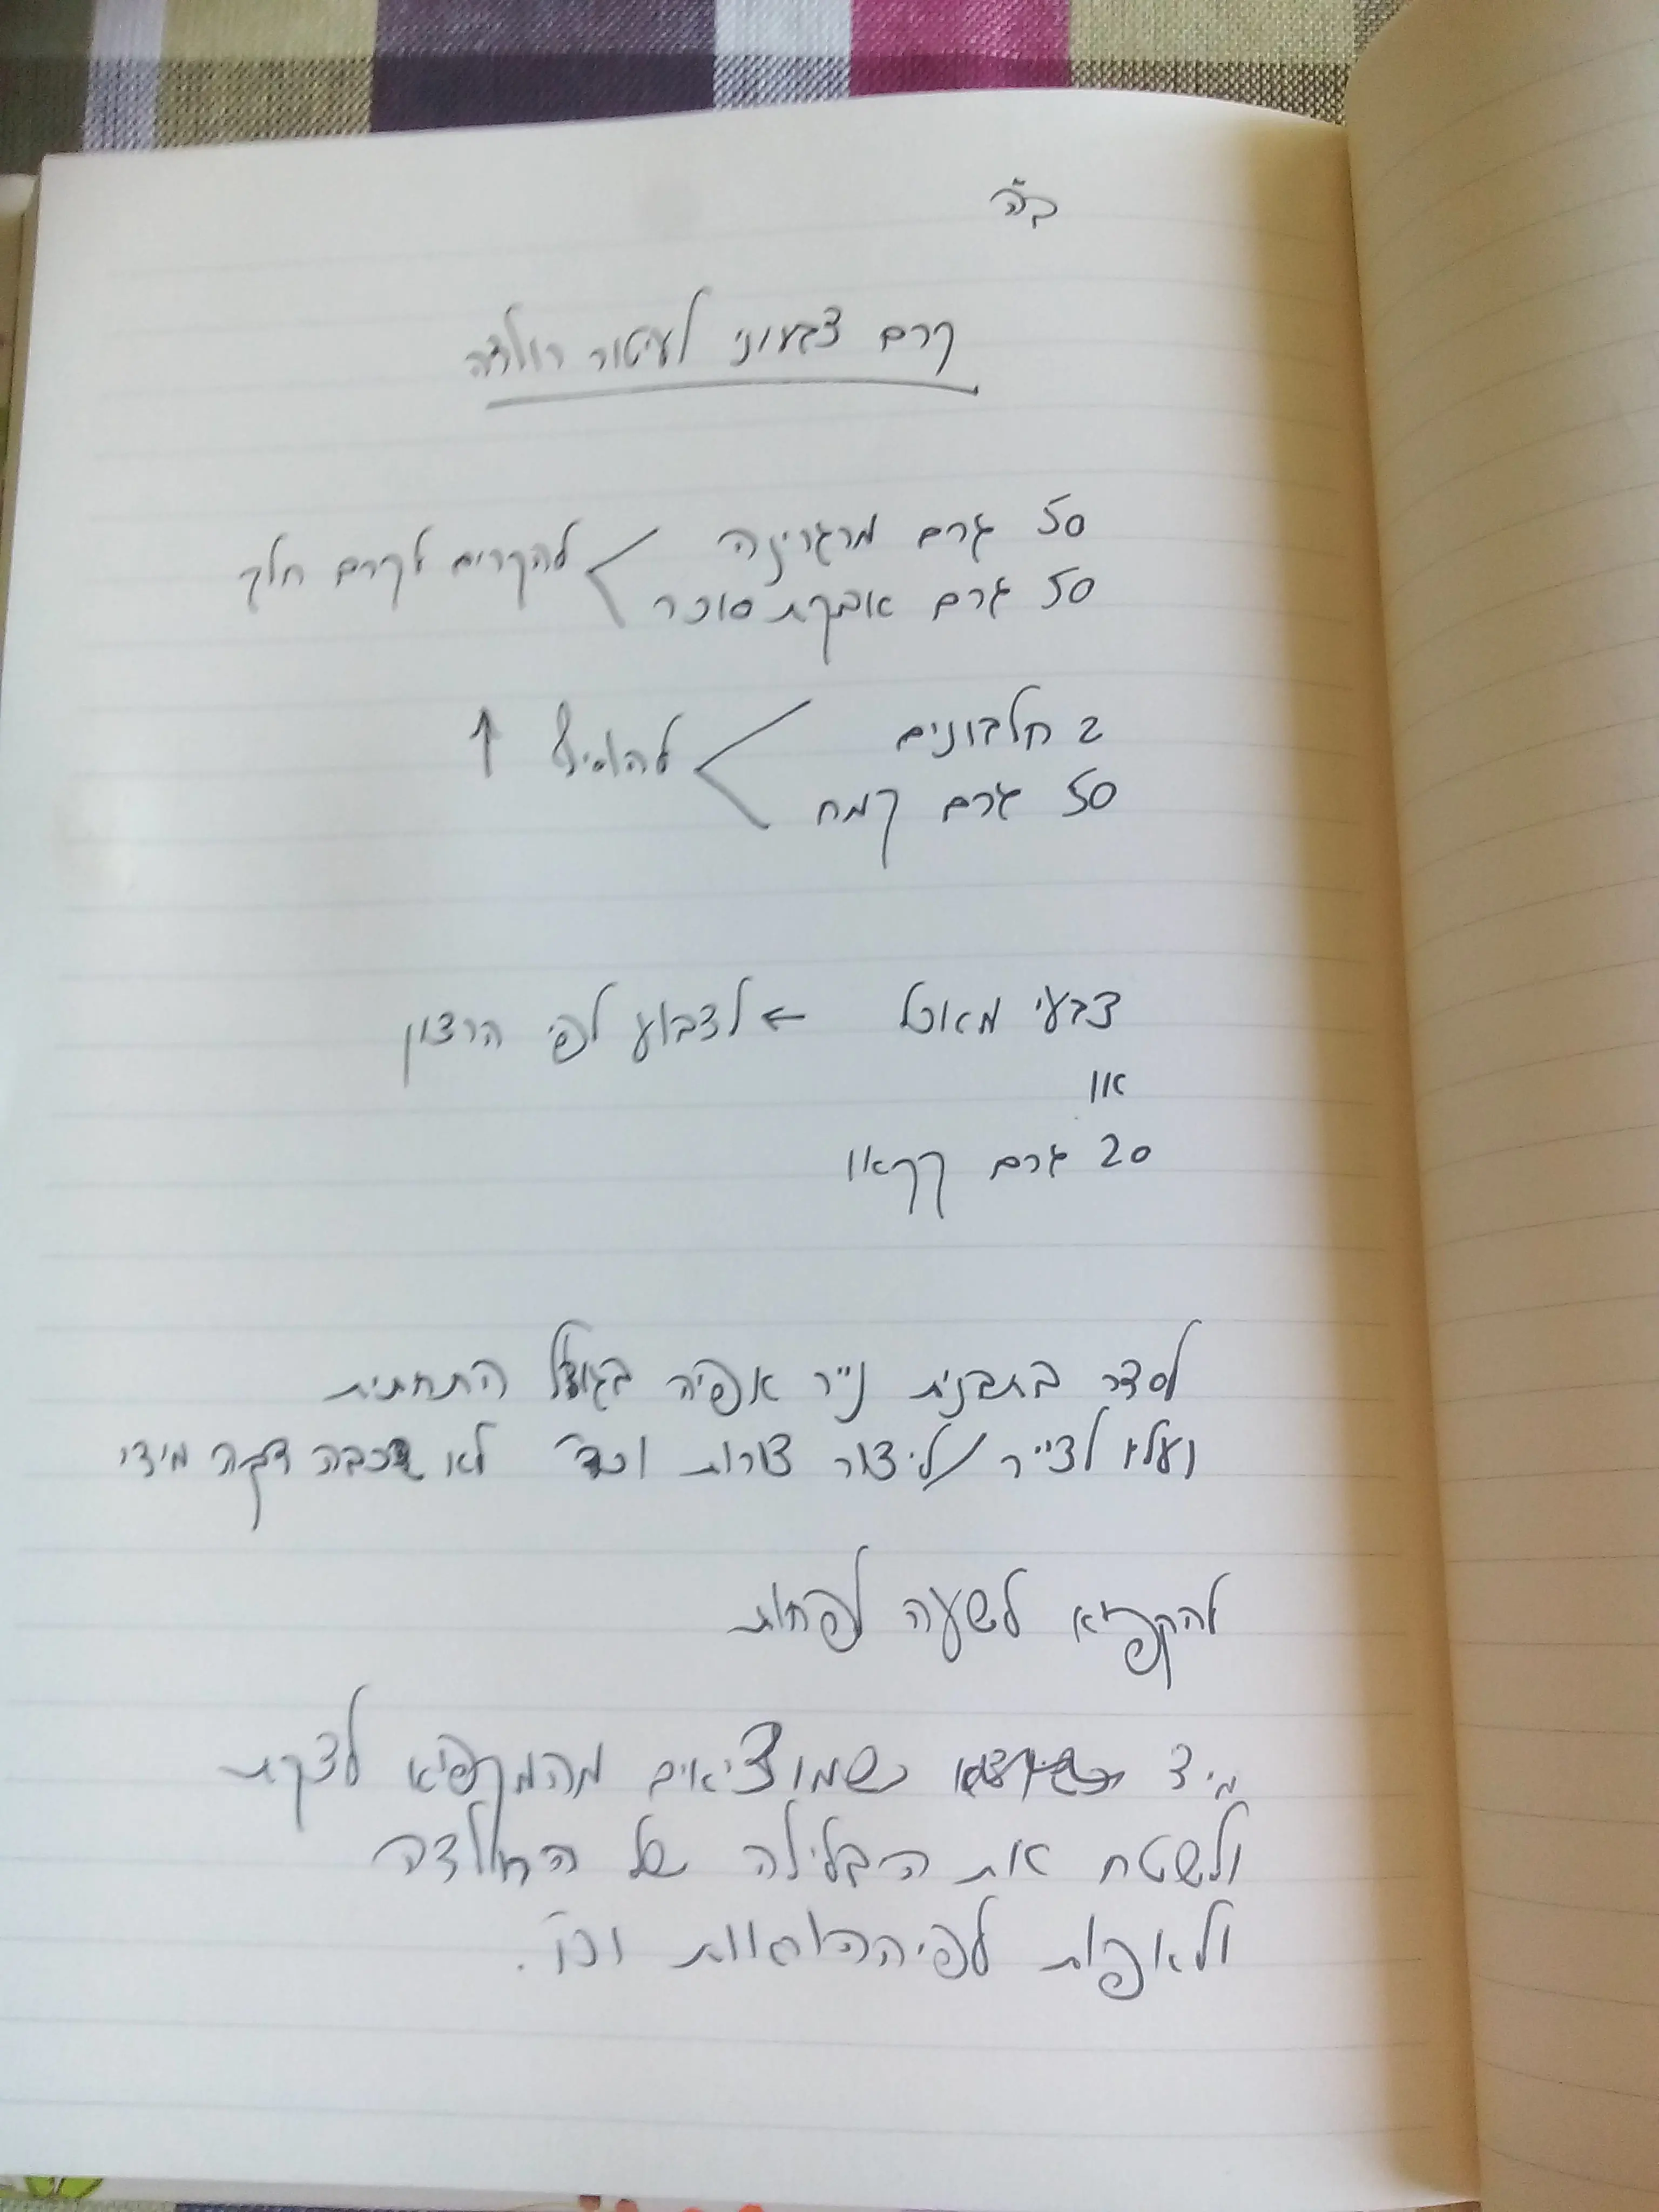 ב"ה
קרם צבעוני לעיטור רולדה
50 גרם מרגרינה
50 גרם אבקת סוכר > להקרים לקרם חלק
2 חלבונים
50 גרם קמח > להוסיף ↑
צבעי מאוכל ← לצבוע לפי הרצון
או
20 גרם קקאו
לסדר בתבנית נייר אפיה בגודל התחתית
ועליו לצייר / ליצור צורות וכו' לא שכבה דקה מידי
להקפיא לשעה לפחות
מיד כשמוציאים מהמקפיא לצקת
ולשטח את הבלילה של הרולדה
ולאפות לפי ההוראות וכו'.